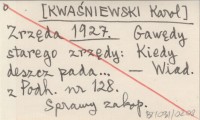 [KWAŚNIEWSKI Karol]
Zrzęda 1927. Gawędy
starego zrzędy: Kiedy
deszcz pada... — Wiad.
z Podh. nr 128.
Sprawy zakop.